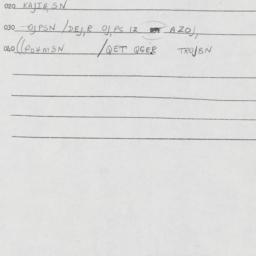 020 KAJTA, SN
030 OJPSN / DEJ, R OJ, PC IZ AZOJ,
040 ((POTMSN / QET QGER TROJSN